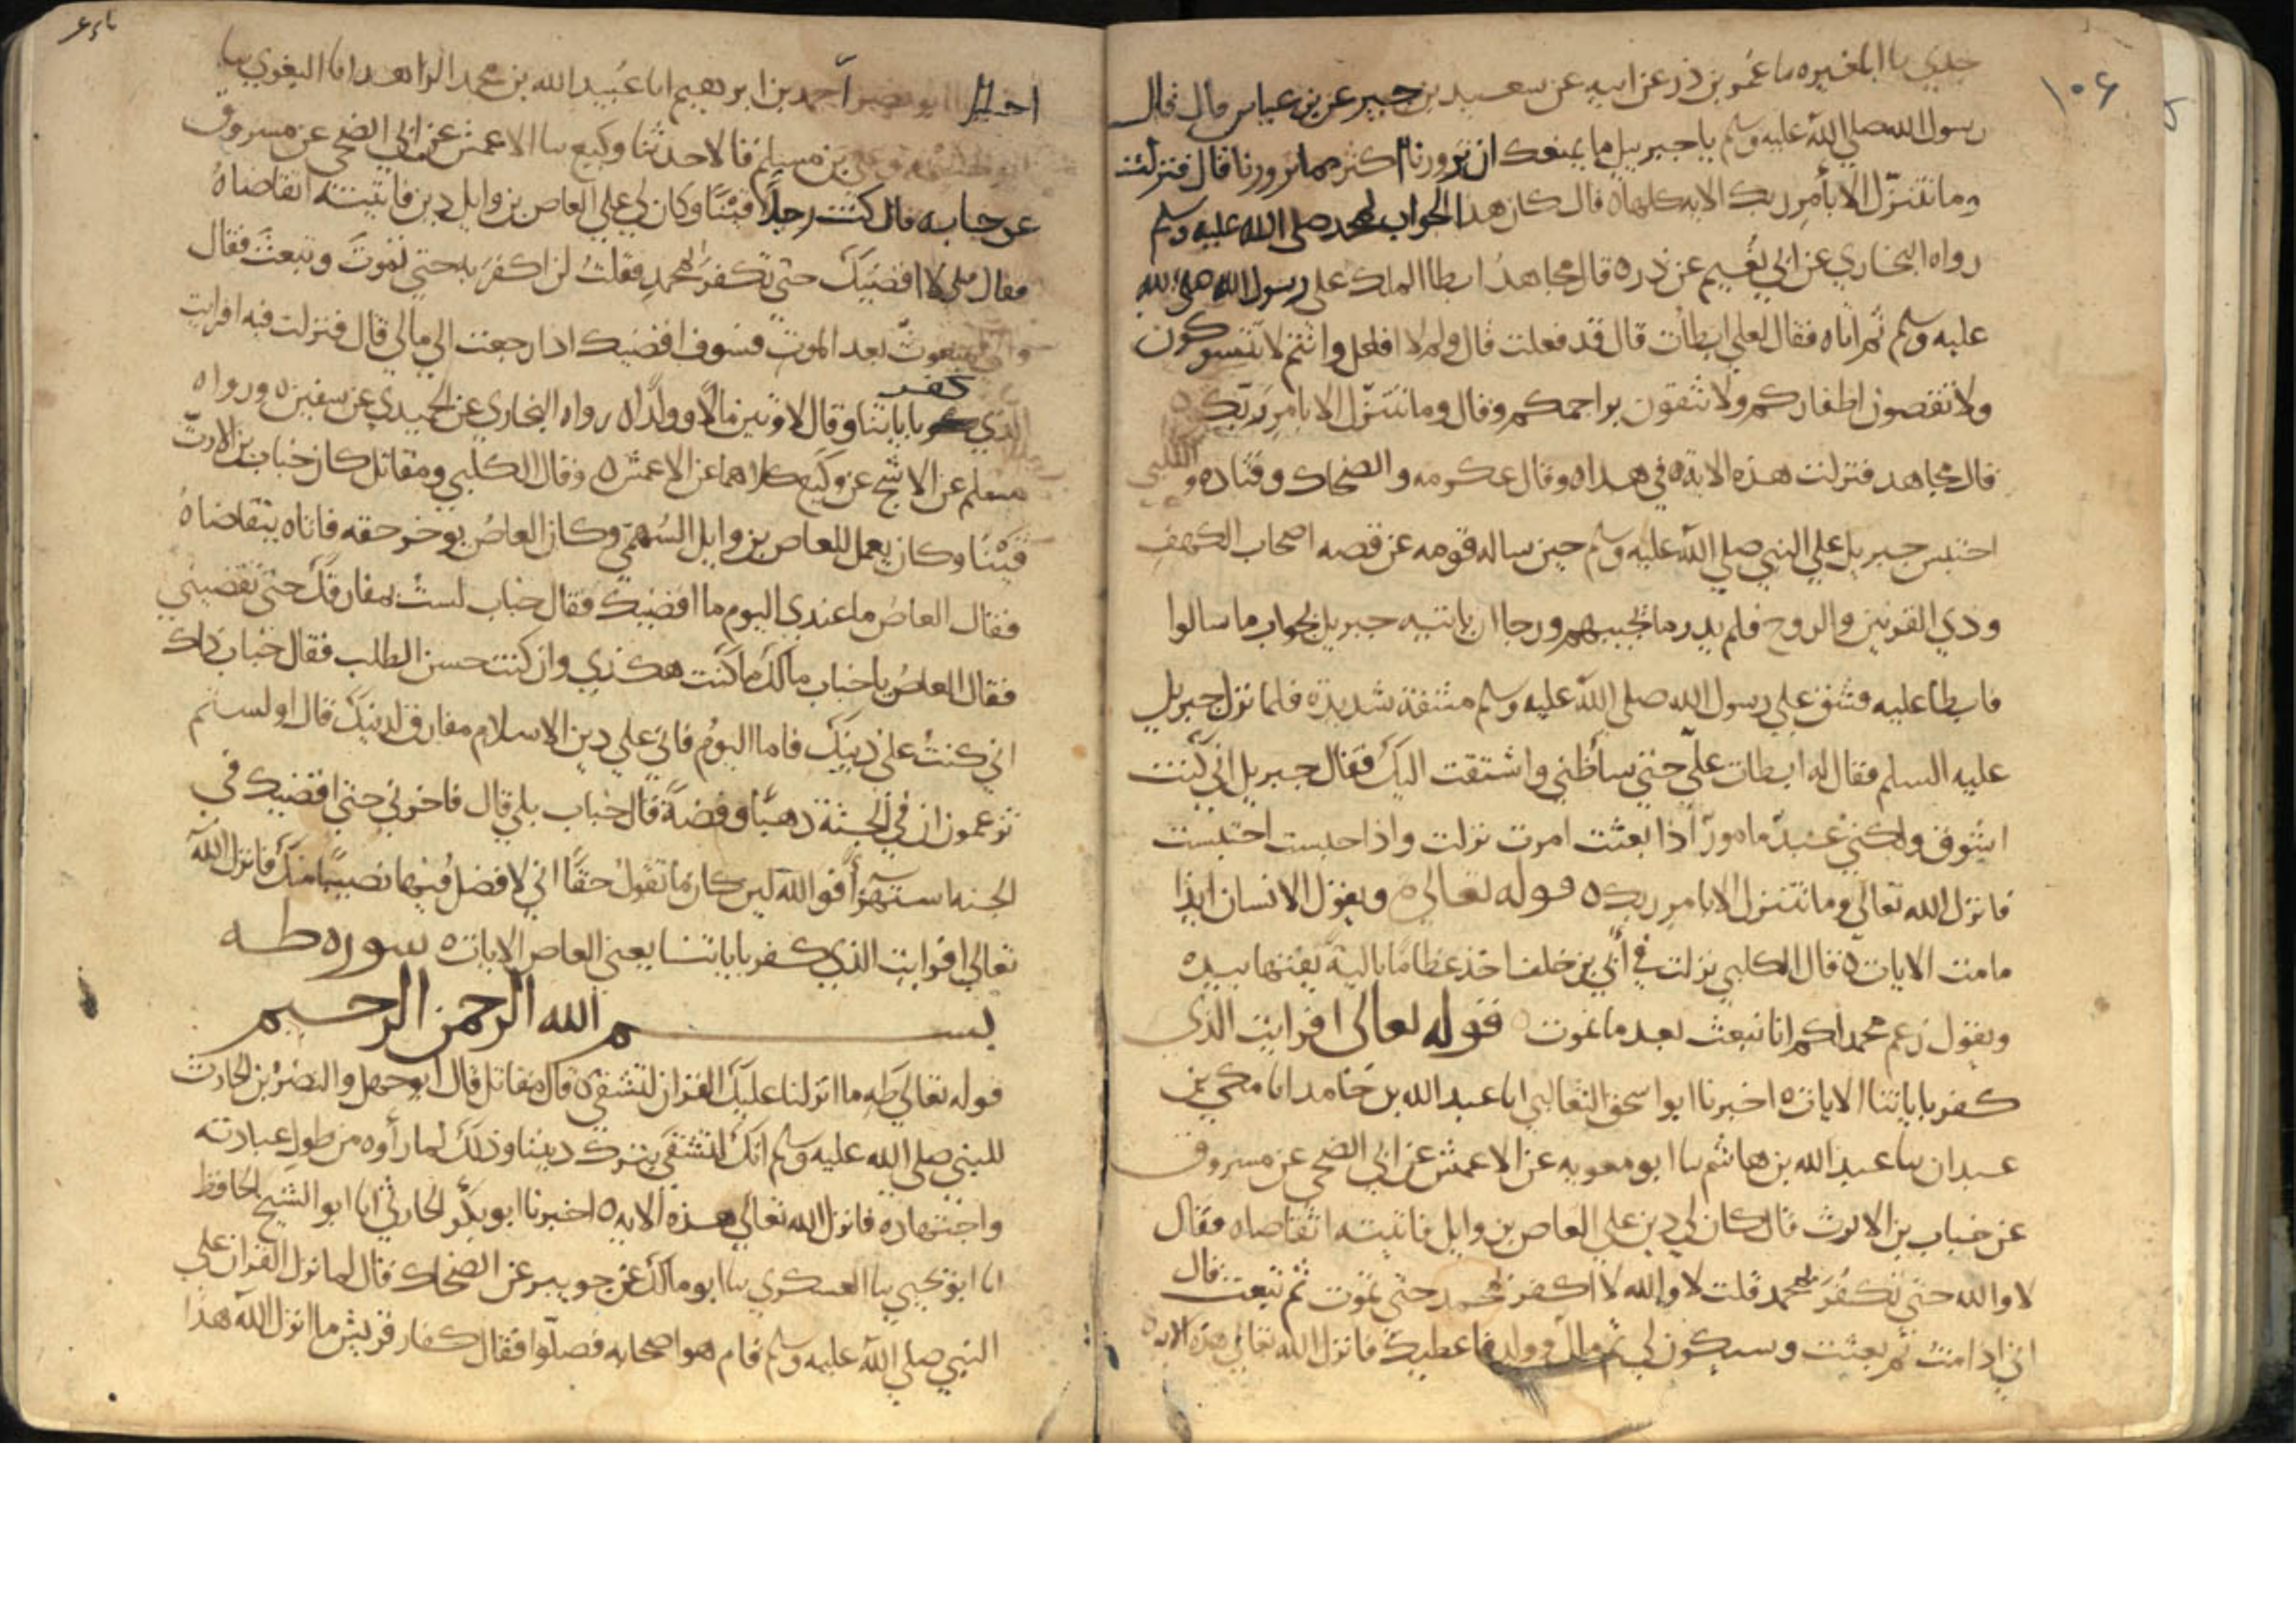 ١٠٦
جدي سا ابا المغيره سا عمر بن ذر عن ابيه عن سعيد بن جبير عن بن عباس قال قال
رسول الله صلى الله عليه وسلم يا جبريل ما يمنعك ان تزورنا اكثر مما تزورنا قال فنزلت
وما نتنزل الا بأمر ربك الايه كلها ه قال كان هذا الجواب لمحمد صلى الله عليه وسلم
رواه البخاري عن ابي نعيم عن ذر ه قال مجاهد ابطا الملك على رسول الله صلى الله
عليه وسلم ثم اتاه فقال لعلي ابطأت قال قد فعلت قال ولم لا افعل وانتم لا تتسوكون
ولا تقصون اظفاركم ولا تنقون براجمكم وقال وما نتنزل الا بامر ربك ه
قال مجاهد فنزلت هذه الاية ه في هذا ه وقال عكرمه والضحاك وقتاده و
احتبس جبريل علي النبي صلي الله عليه وسلم حين ساله قومه عن قصه اصحاب الكهف
وذي القرنين والروح فلم يدر ما يجيبهم ورجا ان ياتيه جبريل بجواب ما سالوا
فابطا عليه فشق علي رسول الله صلي الله عليه وسلم مشقة شديدة فلما نزل جبريل
عليه السلم فقال له ابطات علي حتي ساظني واشتقت اليك فقال جبريل اني كنت
اشوق ولكني عبد مامور اذا بعثت امرت نزلت واذا حبست احتبست
فانزل الله تعالي وما نتنزل الا بامر ربك ه قوله تعالي ويقول الانسان ايذا
ما مت الايات ه قال الكلبي نزلت في أبي بن خلف اخذ عظاما بالية يفتنها بيده
ويقول زعم محمد لكم انا نبعث بعد ما نموت ه قوله تعالى افرايت الذي
كفر باياتنا الايات ه اخبرنا ابو اسحق الثعالبي ابا عبد الله بن حامد انا مكي بن
عبدان سا عبد الله بن هاشم سا ابو معويه عن الاعمش عن ابي الضحي عن مسروق
عن خباب بن الارث قال كان لي دين علي العاص بن وايل فاتيته اتقاضاه فقال
لا والله حتي تكفر بمحمد قلت لا والله لا اكفر بمحمد حتي تموت ثم تبعث قال
اني اذا مت ثم بعثت وسيكون لي ثم مال وولد فاعطيك فانزل الله تعالي هذه الايه ه
احمد بن ابرهيم انا عبيد الله بن محمد الزاهد انا البغوي سا
بن مسلم قالا حدثنا وكيع سا الاعمش عن ابي الضحي عن مسروق
عن خبابه قال كنت رجلا قينا وكان لي علي العاص بن وايل دين فاتيته اتقاضاه
فقال لي لا اقضيك حتي تكفر بمحمد فقلت لن اكفر به حتي تموت وتبعث فقال
واني لمبعوث بعد الموت فسوف اقضيك اذا رجعت الي مالي قال فنزلت فيه افرايت
الذي كفر باياتنا وقال لاوتين مالا وولدا ه رواه البخاري عن الحميدي عن سفين ه ورواه
مسلم عن الاشج عن وكيع كلاهما عن الاعمش ه وقال الكلبي ومقاتل كان خباب بن الارت
قينا وكان يعمل للعاص بن وايل السهمي وكان العاص يوخر حقه فاتاه يتقاضاه
فقال العاص ما عندي اليوم ما اقضيك فقال خباب لست بمفارقك حتي تقضيني
فقال العاص يا خباب مالك ما كنت هكذي وان كنت حسن الطلب فقال خباب ذاك
اني كنت علي دينك فاما اليوم فاني علي دين الاسلام مفارق لدينك قال اولستم
تزعمون ان في الجنة ذهبا وفضة قال خباب بلي قال فاخرني حتي اقضيك في
الجنه استهزأ فوالله لين كان ما تقول حقا اني لافضل فيها نصيبا منك فانزل الله
تعالي افرايت الذي كفر باياتنا يعني العاص الايات ه سوره طه
بسم الله الرحمن الرحيم
قوله تعالي طه ما انزلنا عليك القران لتشقي ه قال مقاتل قال ابو جهل والنضر بن الحارث
للنبي صلي الله عليه وسلم انك لتشقي بترك ديننا وذلك لما رأوه من طول عبادته
واجتهاده فانزل الله تعالي هذه الايه ه اخبرنا ابو بكر الحارثي انا ابو الشيخ الحافظ
انا ابو يحيي سا العسكري سا ابو مالك عن جويبر عن الضحاك قال لما نزل القران علي
النبي صلي الله عليه وسلم قام هو واصحابه فصلوا فقال كفار قريش ما انزل الله هذا